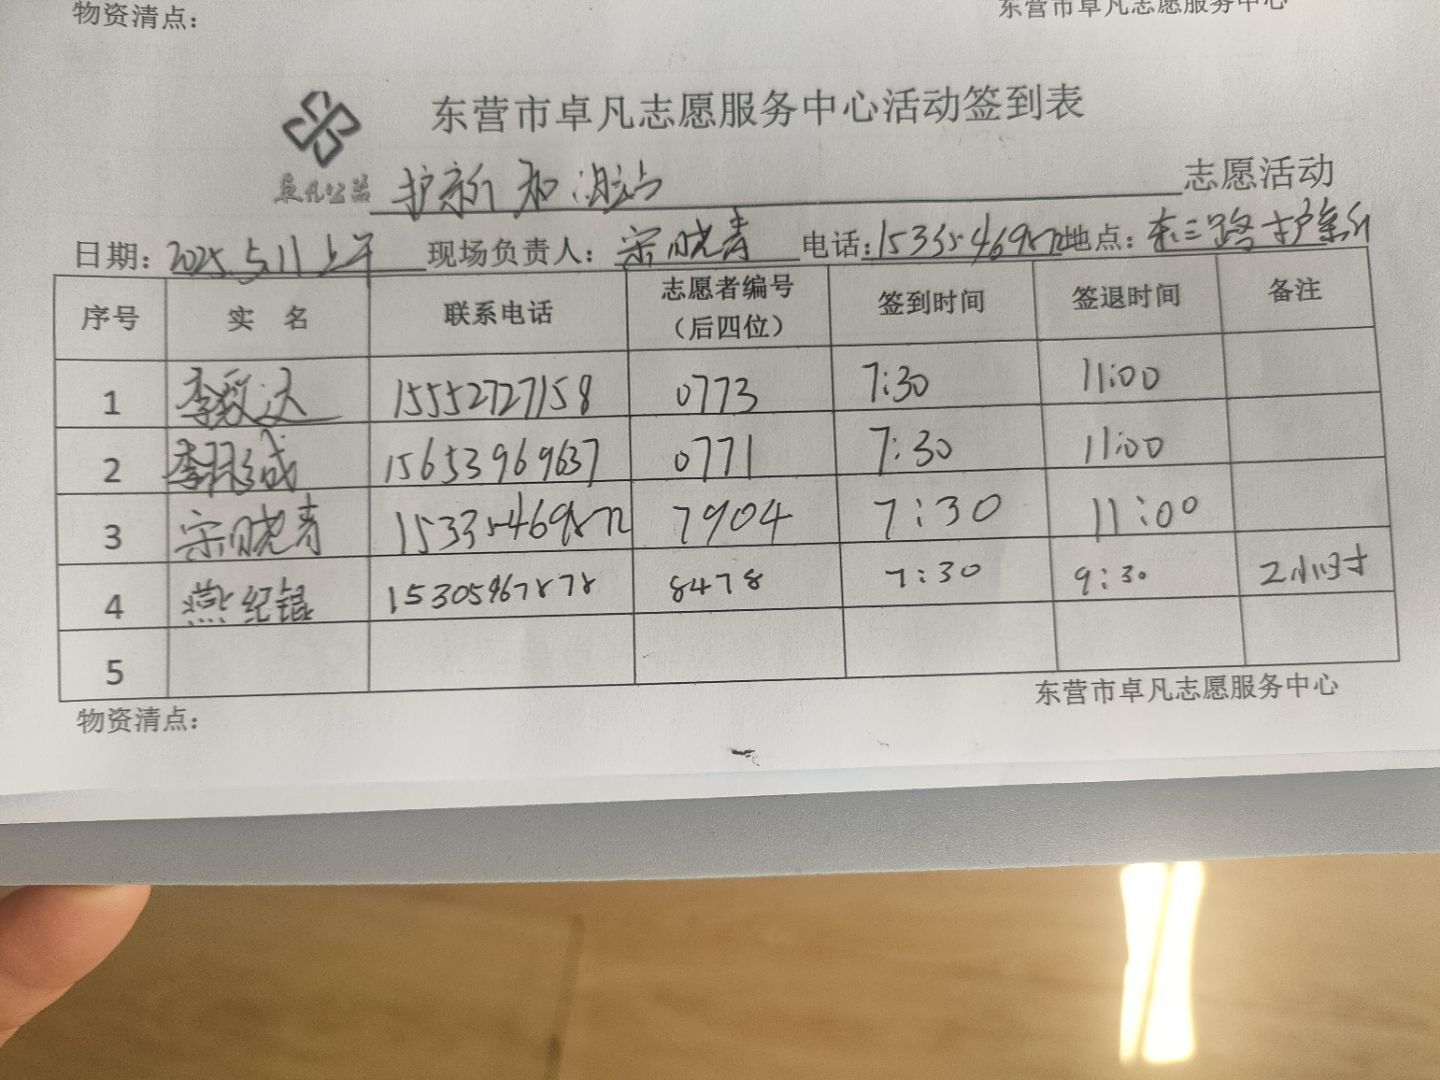 物资清点：
东营市卓凡志愿服务中心
东营市卓凡志愿服务中心活动签到表
卓凡公益 护新和 志愿活动
日期：2025.5.11上午 现场负责人：宋晓青 电话： 地点：东三路护新
序号 实 名 联系电话 志愿者编号（后四位） 签到时间 签退时间 备注
1 李致达 15552727158 0773 7:30 11:00
2 李 成 15653969637 0771 7:30 11:00
3 宋晓青 7904 7:30 11:00
4 燕纪锟 15305467878 8478 7:30 9:30 2小时
5
物资清点：
东营市卓凡志愿服务中心